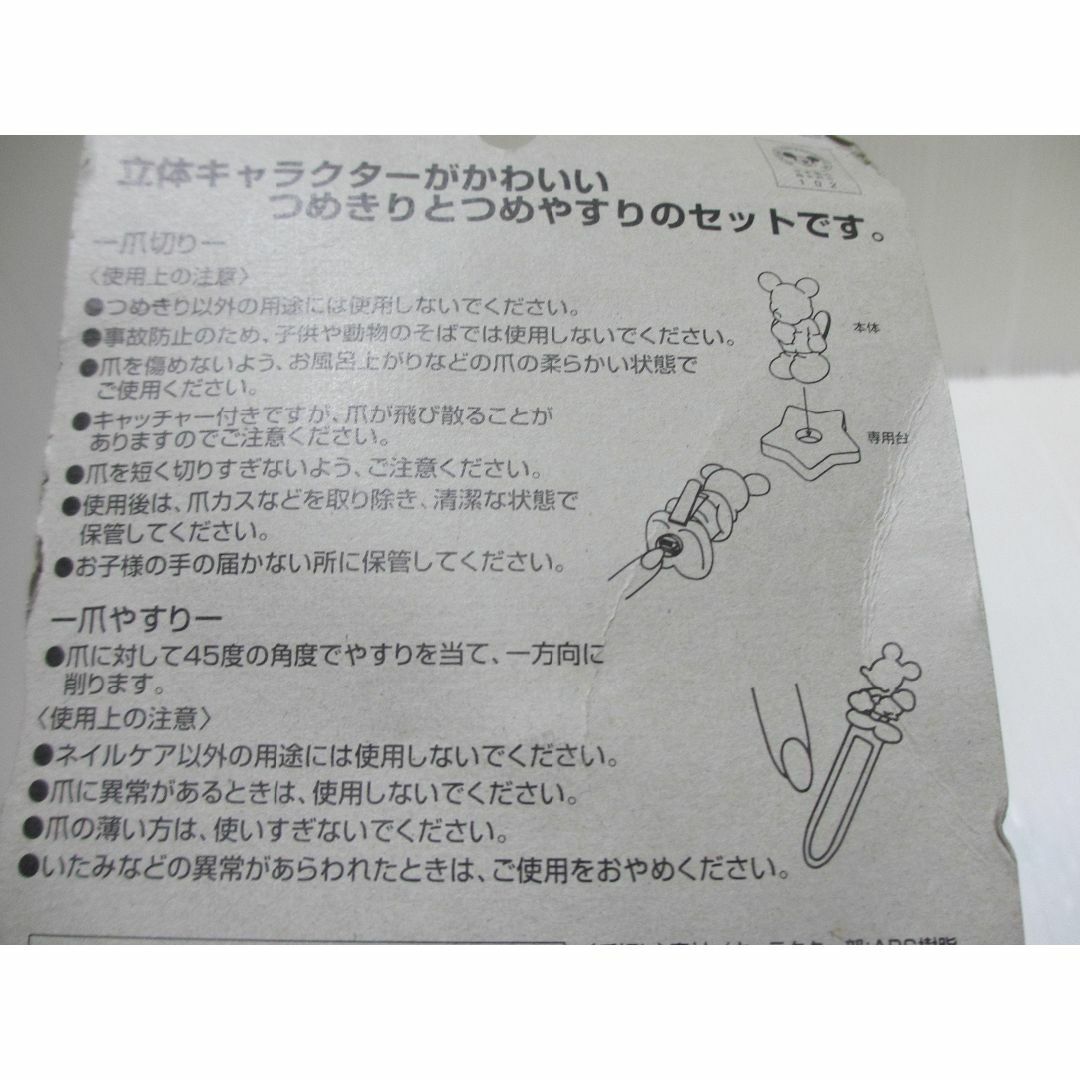 立体キャラクターがかわいい
つめきりとつめやすりのセットです。
102
ー爪切りー
〈使用上の注意〉
●つめきり以外の用途には使用しないでください。
●事故防止のため、子供や動物のそばでは使用しないでください。
●爪を傷めないよう、お風呂上がりなどの爪の柔らかい状態で
ご使用ください。
●キャッチャー付きですが、爪が飛び散ることが
ありますのでご注意ください。
●爪を短く切りすぎないよう、ご注意ください。
●使用後は、爪カスなどを取り除き、清潔な状態で
保管してください。
●お子様の手の届かない所に保管してください。
本体
専用台
ー爪やすりー
●爪に対して45度の角度でやすりを当て、一方向に
削ります。
〈使用上の注意〉
●ネイルケア以外の用途には使用しないでください。
●爪に異常があるときは、使用しないでください。
●爪の薄い方は、使いすぎないでください。
●いたみなどの異常があらわれたときは、ご使用をおやめください。